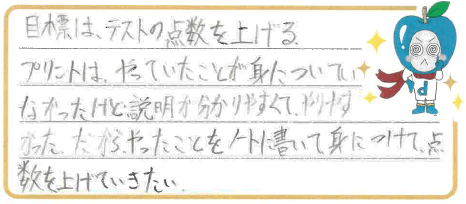 目標は、テストの点数を上げる。
プリントは、やっていたことが身についてい
なかったけど、説明が分かりやすくて、やりやす
かった。だから、やったことをノートに書いて身につけて、点
数を上げていきたい。
d